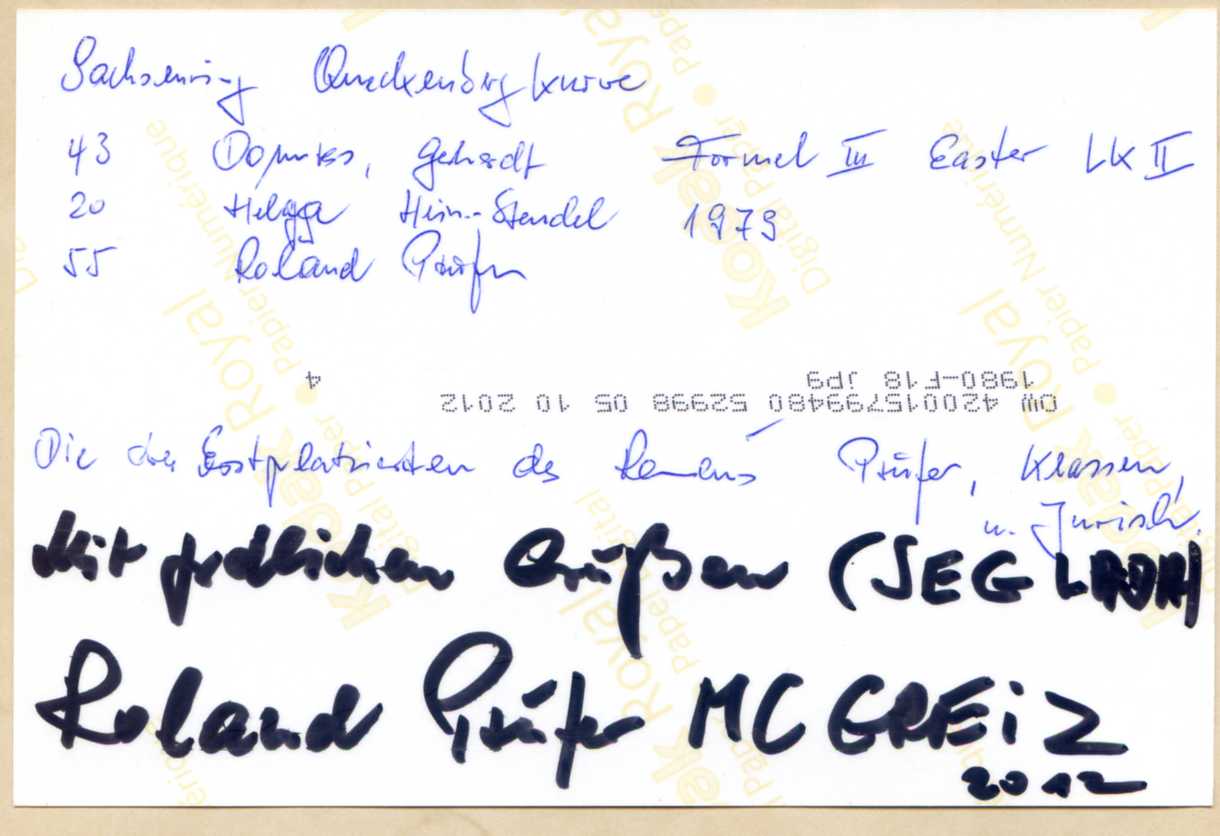 Sachsenring Queckenbergkurve
43 Gehardt Formel III Easter LK II
20 Helgga Heim-Stendel 1979
55 Roland Prüfer
4
1980-F18 JPG
OW 420015799480 52998 05 10 2012
Die drei Erstplatzierten des Rennens Prüfer, Klassen,
u. Jurisch.
Mit Grüßen (SEG LADA)
Roland Prüfer MC GREiZ
2012
Kodak Royal
Digital Paper • Papier Numérique